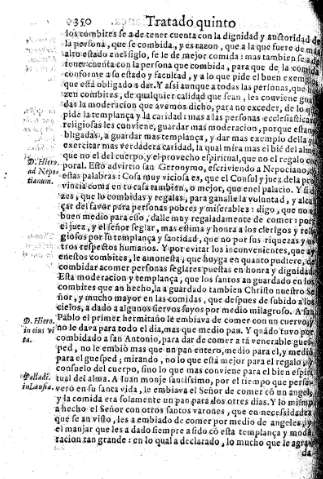 0350 Tratado quinto
los combites se a de tener cuenta con la dignidad y auctoridad de
la persona, que se combida, y es razon, que a la que fuere de mas
alto estado en el siglo, se le de mejor comida: mas tambien se a de
tener cuenta con la persona que combida, para que de la comida
conforme a su estado y facultad, y a lo que pide el buen exemplo
que està obligado a dar. Y assi aunque a todas las personas, que
zen combites, de qualquier calidad que sean, les conviene guar
dar la moderacion que avemos dicho, para no exceder, de lo que
pide la templança y la caridad: mas a las personas ecclesiasticas y
religiosas les conviene, guardar mas moderacion, porque estan
bligadas, a guardar mas templança, y dar mas exemplo della
exercitar mas verdadera caridad, la qual mira mas el biẽ del alma
que no el del cuerpo, y el provecho espiritual, que no el regalo
D. Hiero.
ad Nepo
tianum.
poral. Esto advirtio san Geronymo, escriviendo a Nepociano
estas palabras: Cosa muy viciosa es, que el Consul y juez de la pro
vincia coma en tu casa tambien, o mejor, que en el palacio. Y si
zes, que lo combidas y regalas, para ganalle la voluntad, y alcan
çar del favor para personas pobres y miserables: digo, que no es
buen medio para esso, dalle muy regaladamente de comer: porque
el juez, y el señor seglar, mas estima y honra a los clerigos y reli
giosos por su templança y sanctidad, que no por sus riquezas y
tros respetos humanos. Y por evitar los inconvenientes, que ay
en estos combites, le amonesta, que huyga en quanto pudiere, de
combidar a comer personas seglares puestas en honra y dignidad.
Esta moderacion y templança, que los santos an guardado en los
combites que an hecho, la a guardado tambien Christo nuestro Se
ñor, y mucho mayor en las comidas, que despues de subido a los
cielos, a dado a algunos siervos suyos por medio milagroso. A san
D. Hiero.
in eius vi
ta.
Pablo el primer hermitaño le embiava de comer con un cuervo, y
no le dava para todo el dia, mas que medio pan. Y quãdo tuvo por
combidado a san Antonio, para dar de comer a tã venerable gues
ped, no le embiò mas que un pan entero, medio para el, y medio
para el guesped; mirando, no lo que està mejor para el regalo y
consuelo del cuerpo, sino lo que mas conviene para el bien espiri
Palladi.
in Lausia.
tual del alma. A Iuan monje santissimo, por el tiempo que perse-
verò en su santa vida, le embiava el Señor de comer cõ un angel,
y la comida era solamente un pan para dos otres dias. Y lo mismo
a hecho el Señor con otros santos varones, que en necessidad
que se an visto, les a embiado de comer por medio de angeles, y
el manjar que les a dado siempre a sido cõ esta templança y mode
racion tan grande: en lo qual a declarado, lo mucho que le agra
da